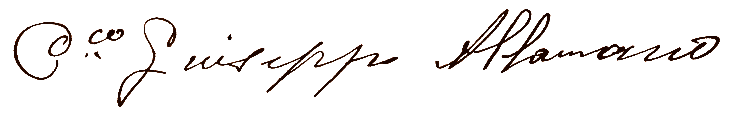 C.co Giuseppe Allamano